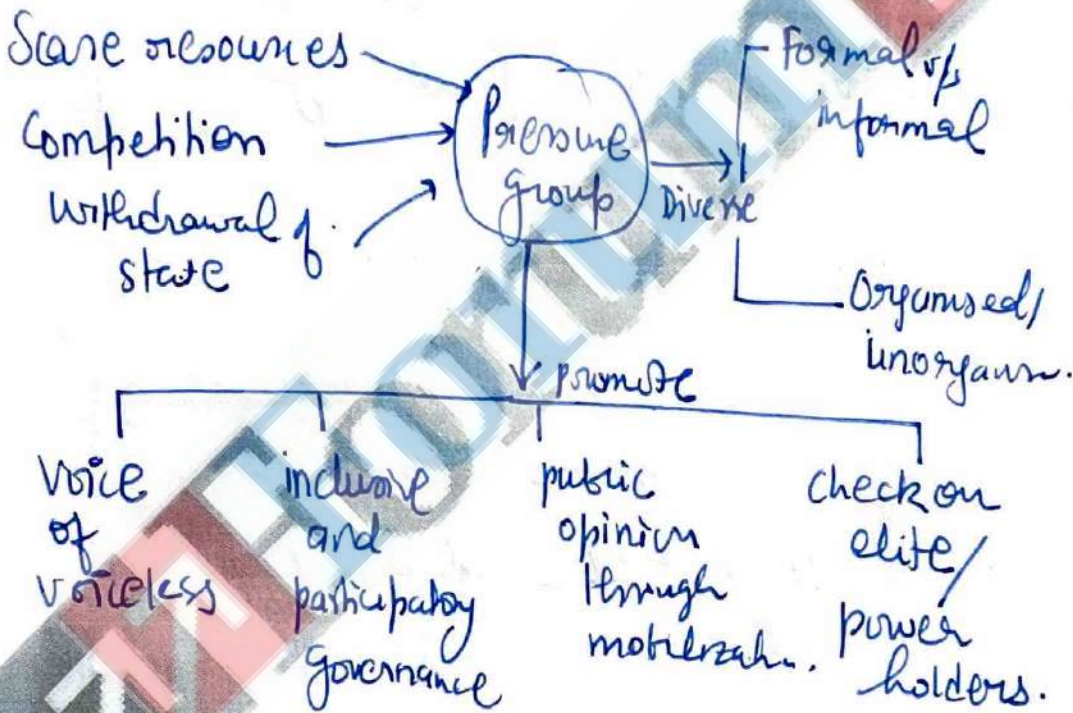 Scare resources
Competition
Withdrawal of
state
Pressure
group
Diverse
Formal v/s
informal
Organised/
unorganis.
promote
voice
of
voiceless
inclusive
and
participatory
governance
public
opinion
through
mobilizatn.
check on
elite/
power
holders.
Forum